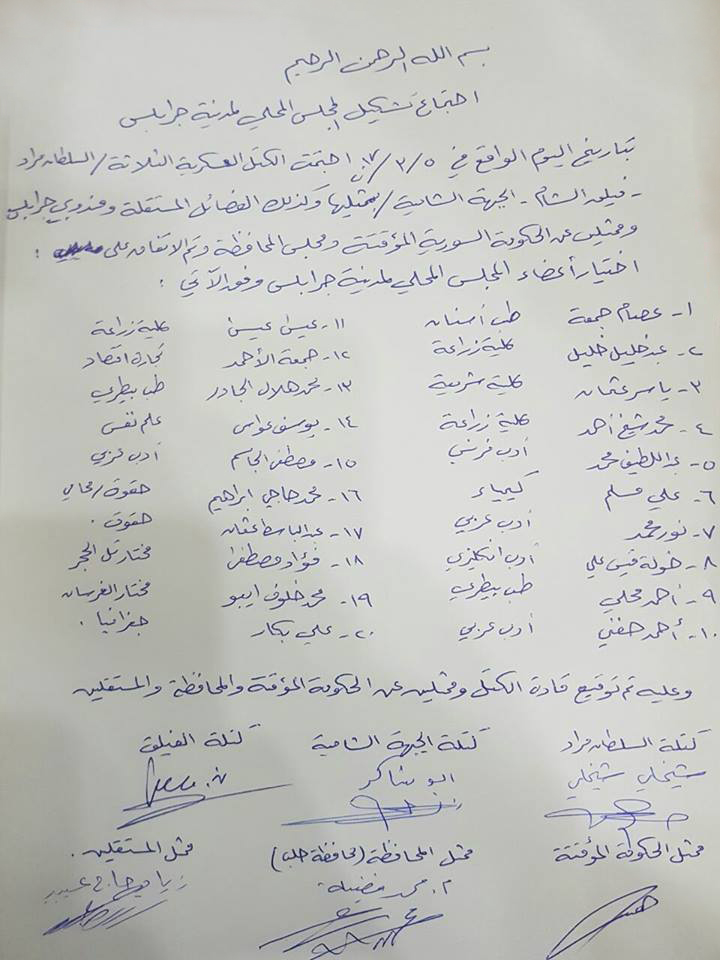 بسم الله الرحمن الرحيم
اجتماع تشكيل المجلس المحلي لمدينة جرابلس
بتاريخ اليوم الواقع في ٥/٣/١٧ اجتمعت الكتل العسكرية الثلاثة / السلطان مراد
- فيلق الشام - الجبهة الشامية / بممثليها وكذلك الفصائل المستقلة ومندوبي جرابلس
وممثلين عن الحكومة السورية المؤقتة ومجلس المحافظة وتم الاتفاق على :
اختيار أعضاء المجلس المحلي لمدينة جرابلس وفق الآتي :
١- عصام جمعة طب أسنان ١١- عيسى عيسى كلية زراعة
٢- عبد خليل خليل كلية زراعة ١٢- جمعة الأحمد تجارة اقتصاد
٣- ياسر عثمان كلية شريعة ١٣- محمد هلال الجادر طب بيطري
٤- محمد شيخ أحمد كلية زراعة ١٤- يوسف عواس علم نفس
٥- عبد اللطيف محمد أدب فرنسي ١٥- مصطفى الجاسم أدب عربي
٦- علي مسلم كيمياء ١٦- محمد حاجي ابراهيم حقوق / محامي
٧- نور محمد أدب عربي ١٧- عبد الباسط عثمان حقوق .
٨- خولة قيس علي أدب انكليزي ١٨- فؤاد مصطفى مختار تل الحجر
٩- أحمد محلي طب بيطري ١٩- محمد خلوف ايبو مختار الغرسان
١٠- أحمد حنفي أدب عربي ٢٠- علي بكار جغرافيا .
وعليه تم توقيع قادة الكتل وممثلين عن الحكومة المؤقتة والمحافظة والمستقلين
كتلة السلطان مراد كتلة الجبهة الشامية كتلة الفيلق
شيخلي شيخلي ابو شاكر
ممثل الحكومة المؤقتة ممثل المحافظة (محافظة حلب) ممثل المستقلين .
م. محمد فضيلة